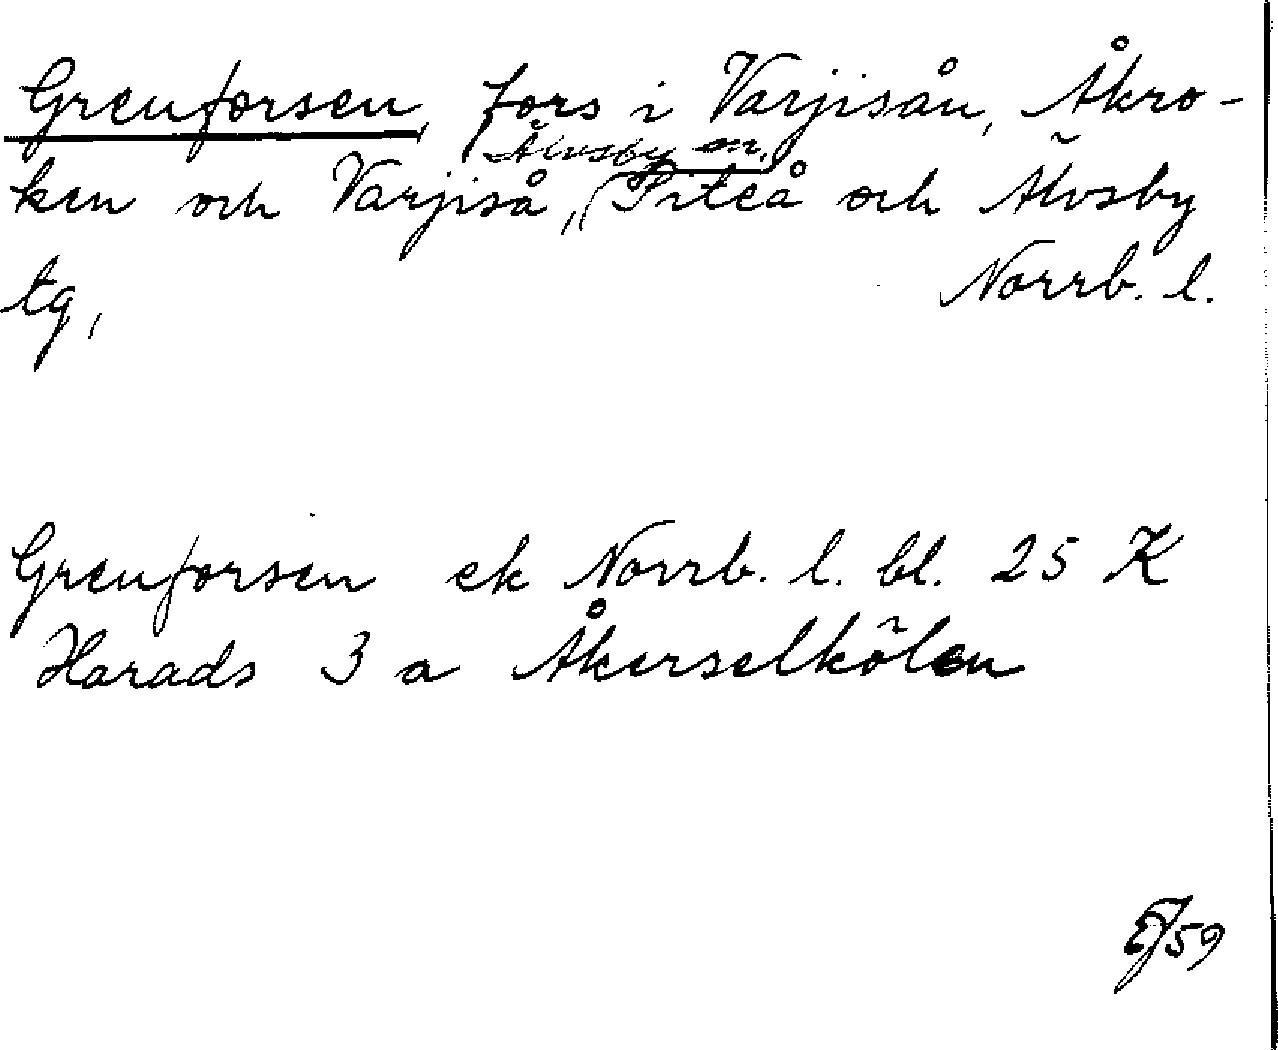 Grenforsen, fors i Varjisån, Åkro-
Älvsby sn.
ken och Varjiså, Piteå och Älvsby
tg, Norrb. l.
Grenforsen ek Norrb. l. bl. 25 K
Harads 3 a Åkerselkölen
59